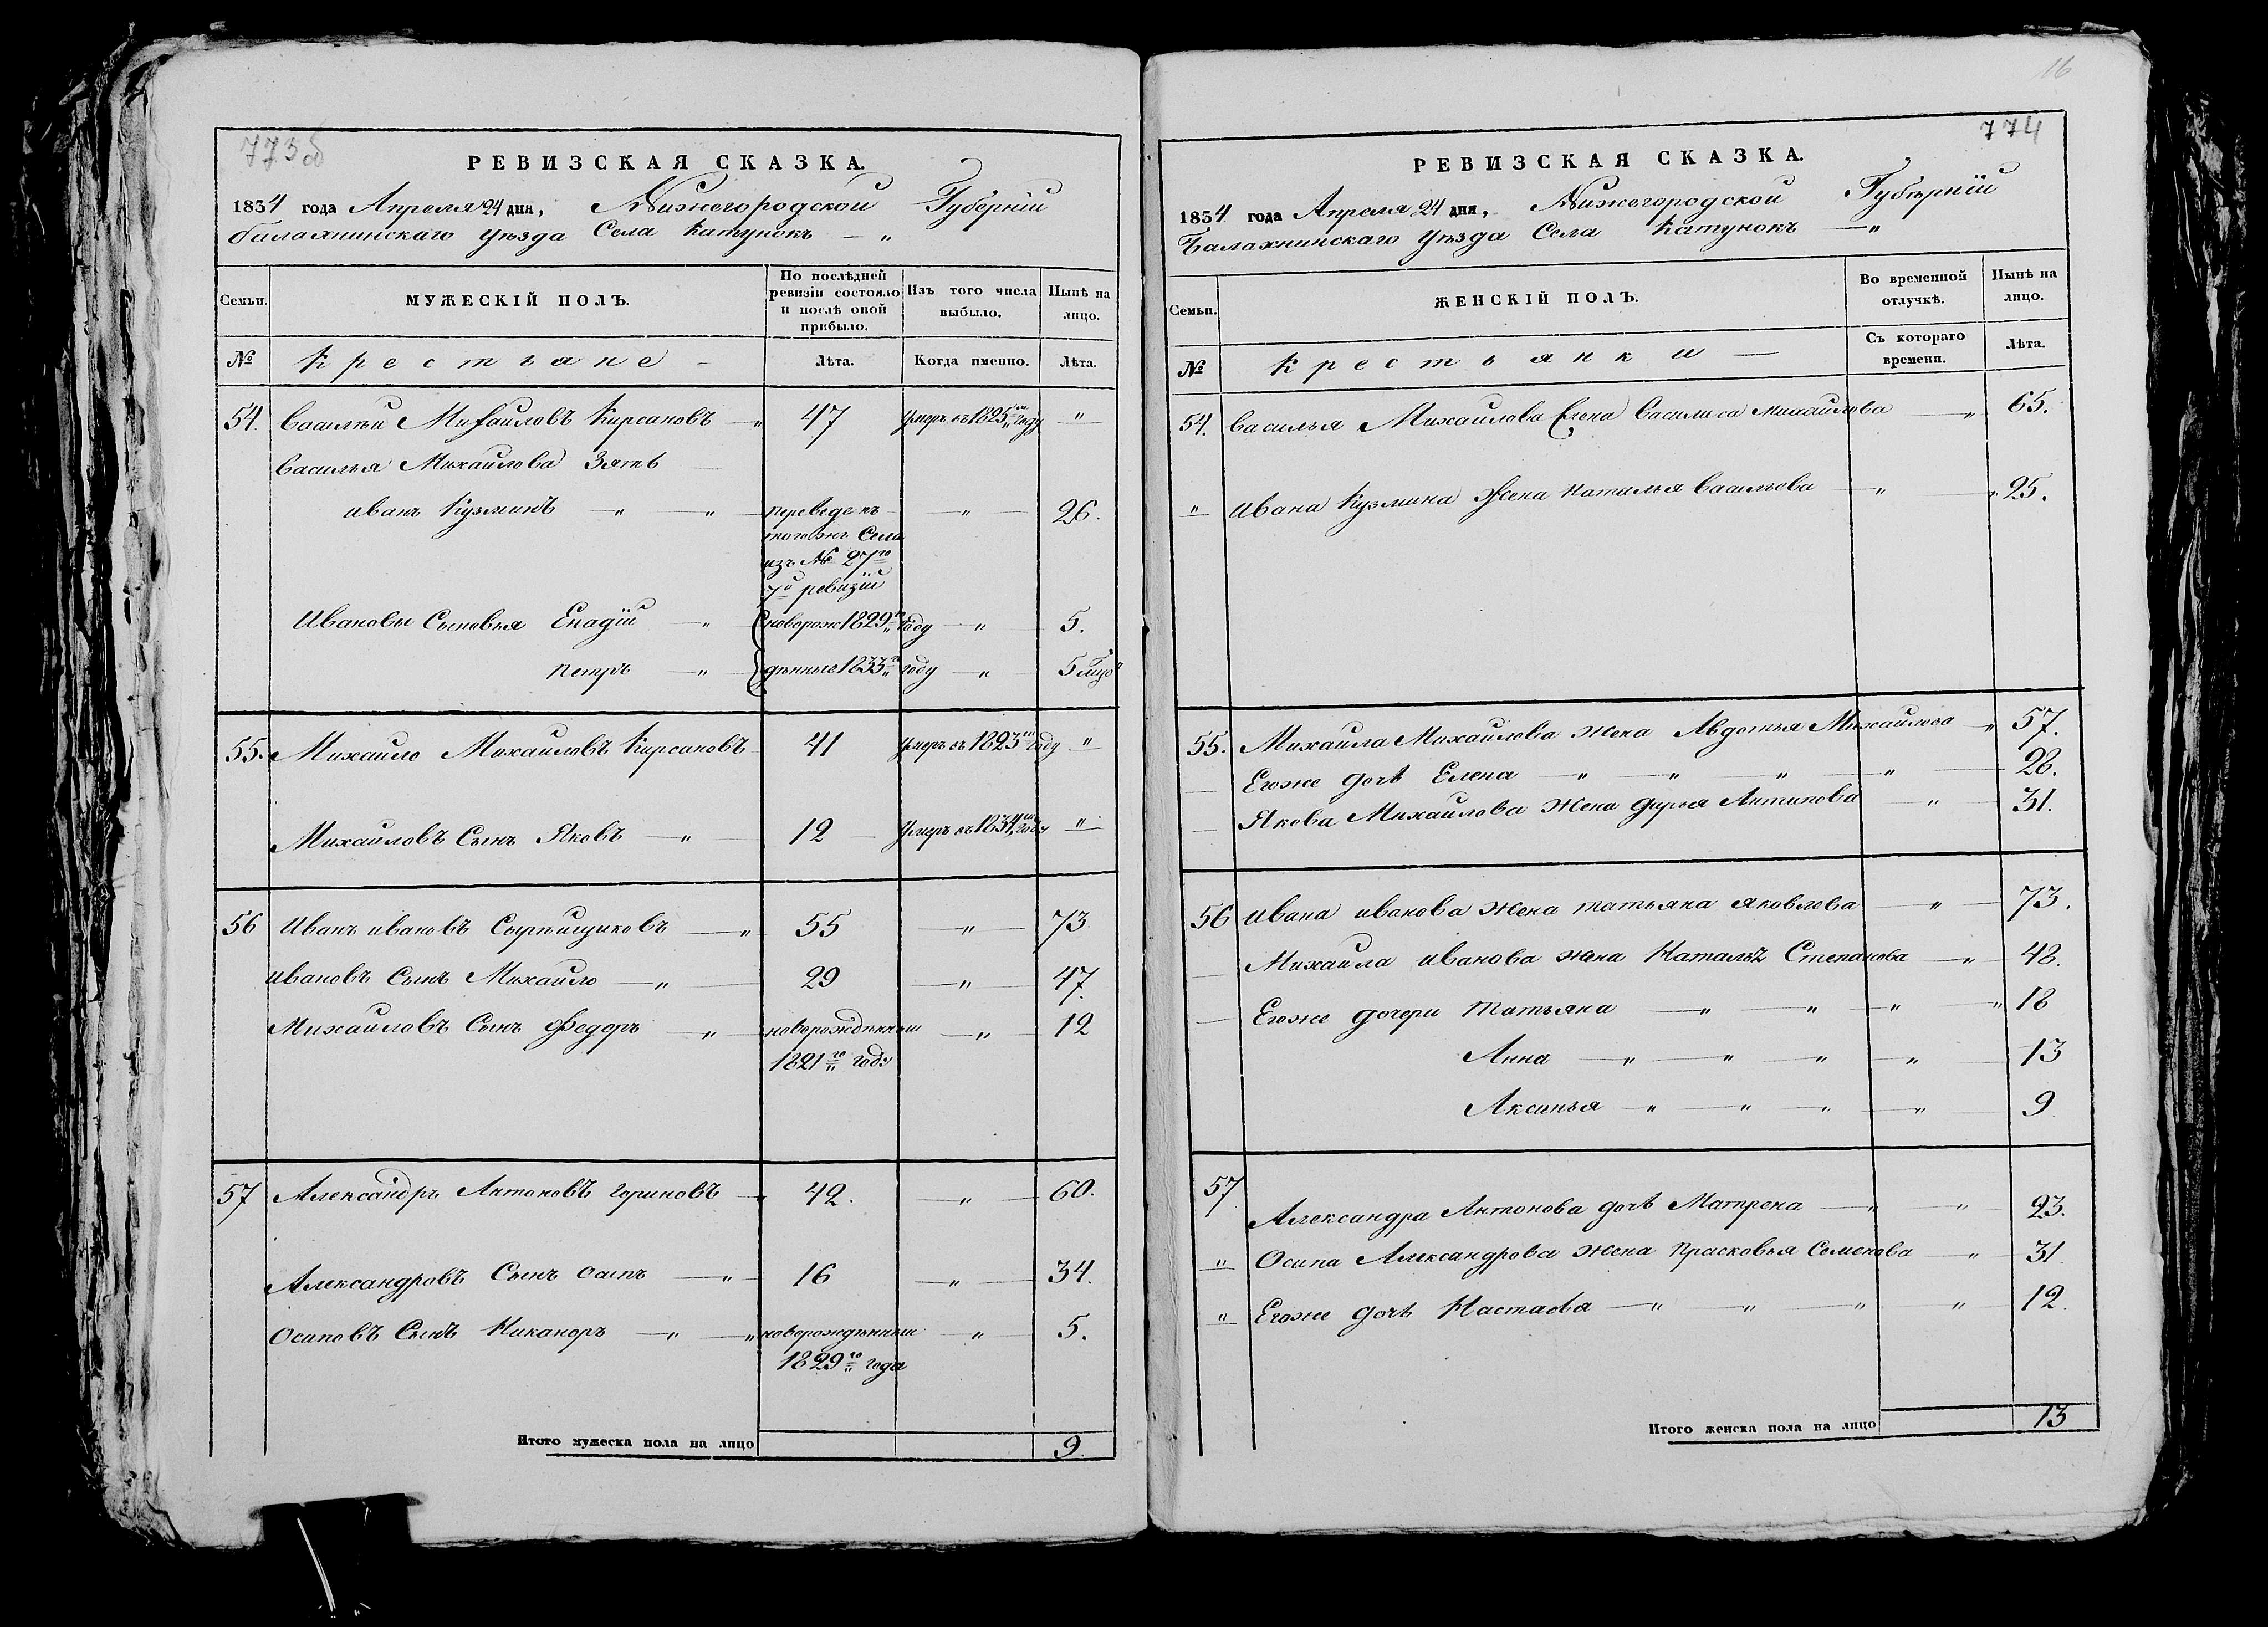 773об
РЕВИЗСКАЯ СКАЗКА.
1834 года Апреля 24 дня, Нижегородской Губернïи
балахнинскаго уѣзда Села Катунокъ — „
Семьи.
МУЖЕСКІЙ ПОЛЪ.
По послѣдней ревизіи состояло и послѣ оной прибыло.
Изъ того числа выбыло.
Нынѣ на лицо.
№
Крестьяне —
Лѣта.
Когда именно.
Лѣта.
54. Василѣй Михайловъ Кирсановъ — „ 47 умеръ въ 1825м году „
Василья Михайлова Зять
иванъ Кузминъ — „ — „ переведенъ — „ — 26.
тогожъ Села
изъ № 27го
7й ревизïи
Ивановы Сыновья Енадïй — „ новорож 1829го году — „ 5.
петръ — „ дѣнные 1833го году — „ 5 мцов
55. Михайло Михайловъ Кирсановъ 41 умеръ въ 1823м году „
Михайловъ Сынъ Яковъ — „ 12 умеръ въ 1834м году „
56 Иванъ ивановъ Сырѣйщиковъ — „ 55 — „ — 73.
ивановъ Сынъ Михайло — „ 29 — „ — 47.
Михайловъ Сынъ Федоръ — „ новорожденный — „ — 12
1821го года
57 Александръ Антоновъ горинов — 42. — „ — 60.
Александровъ Сынъ осипъ — „ 16 — „ — 34.
осиповъ Сынъ Никаноръ — „ — „ новорожденный — „ 5.
1829го года
Итого мужеска пола на лицо 9.
16
774
РЕВИЗСКАЯ СКАЗКА.
1834 года Апреля 24 дня, Нижегородской Губернïи
Балахнинскаго уѣзда Села Катунокъ — „
Семьи.
ЖЕНСКІЙ ПОЛЪ.
Во временной отлучкѣ.
Нынѣ на лицо.
№
Крестьянки —
Съ котораго времени.
Лѣта.
54. Василья Михайлова Жена Василиса михайлова — „ 65.
„ Ивана Кузмина Жена Наталья Васильева — „ — „ 25.
55. Михайла Михайлова жена Авдотья Михайлова „ 57.
— Егоже дочь Елена — „ — „ — „ — „ — 28.
— Якова Михайлова Жена дарья Антипова — „ — 31.
56 ивана иванова жена татьяна яковлева — „ — 73.
— Михайла иванова жена Наталья Степанова — „ — 48.
— Егоже дочери татьяна — „ — „ — „ — „ 18
Анна — „ — „ — „ — „ — 13
Аксинья — „ — „ — „ — „ — 9.
57. Александра Антонова дочь Матрена — „ — „ 23.
„ Осипа Александрова жена прасковья Семенова — „ 31.
„ Егоже дочь Настасья — „ — „ — „ — „ 12.
Итого женска пола на лицо 13